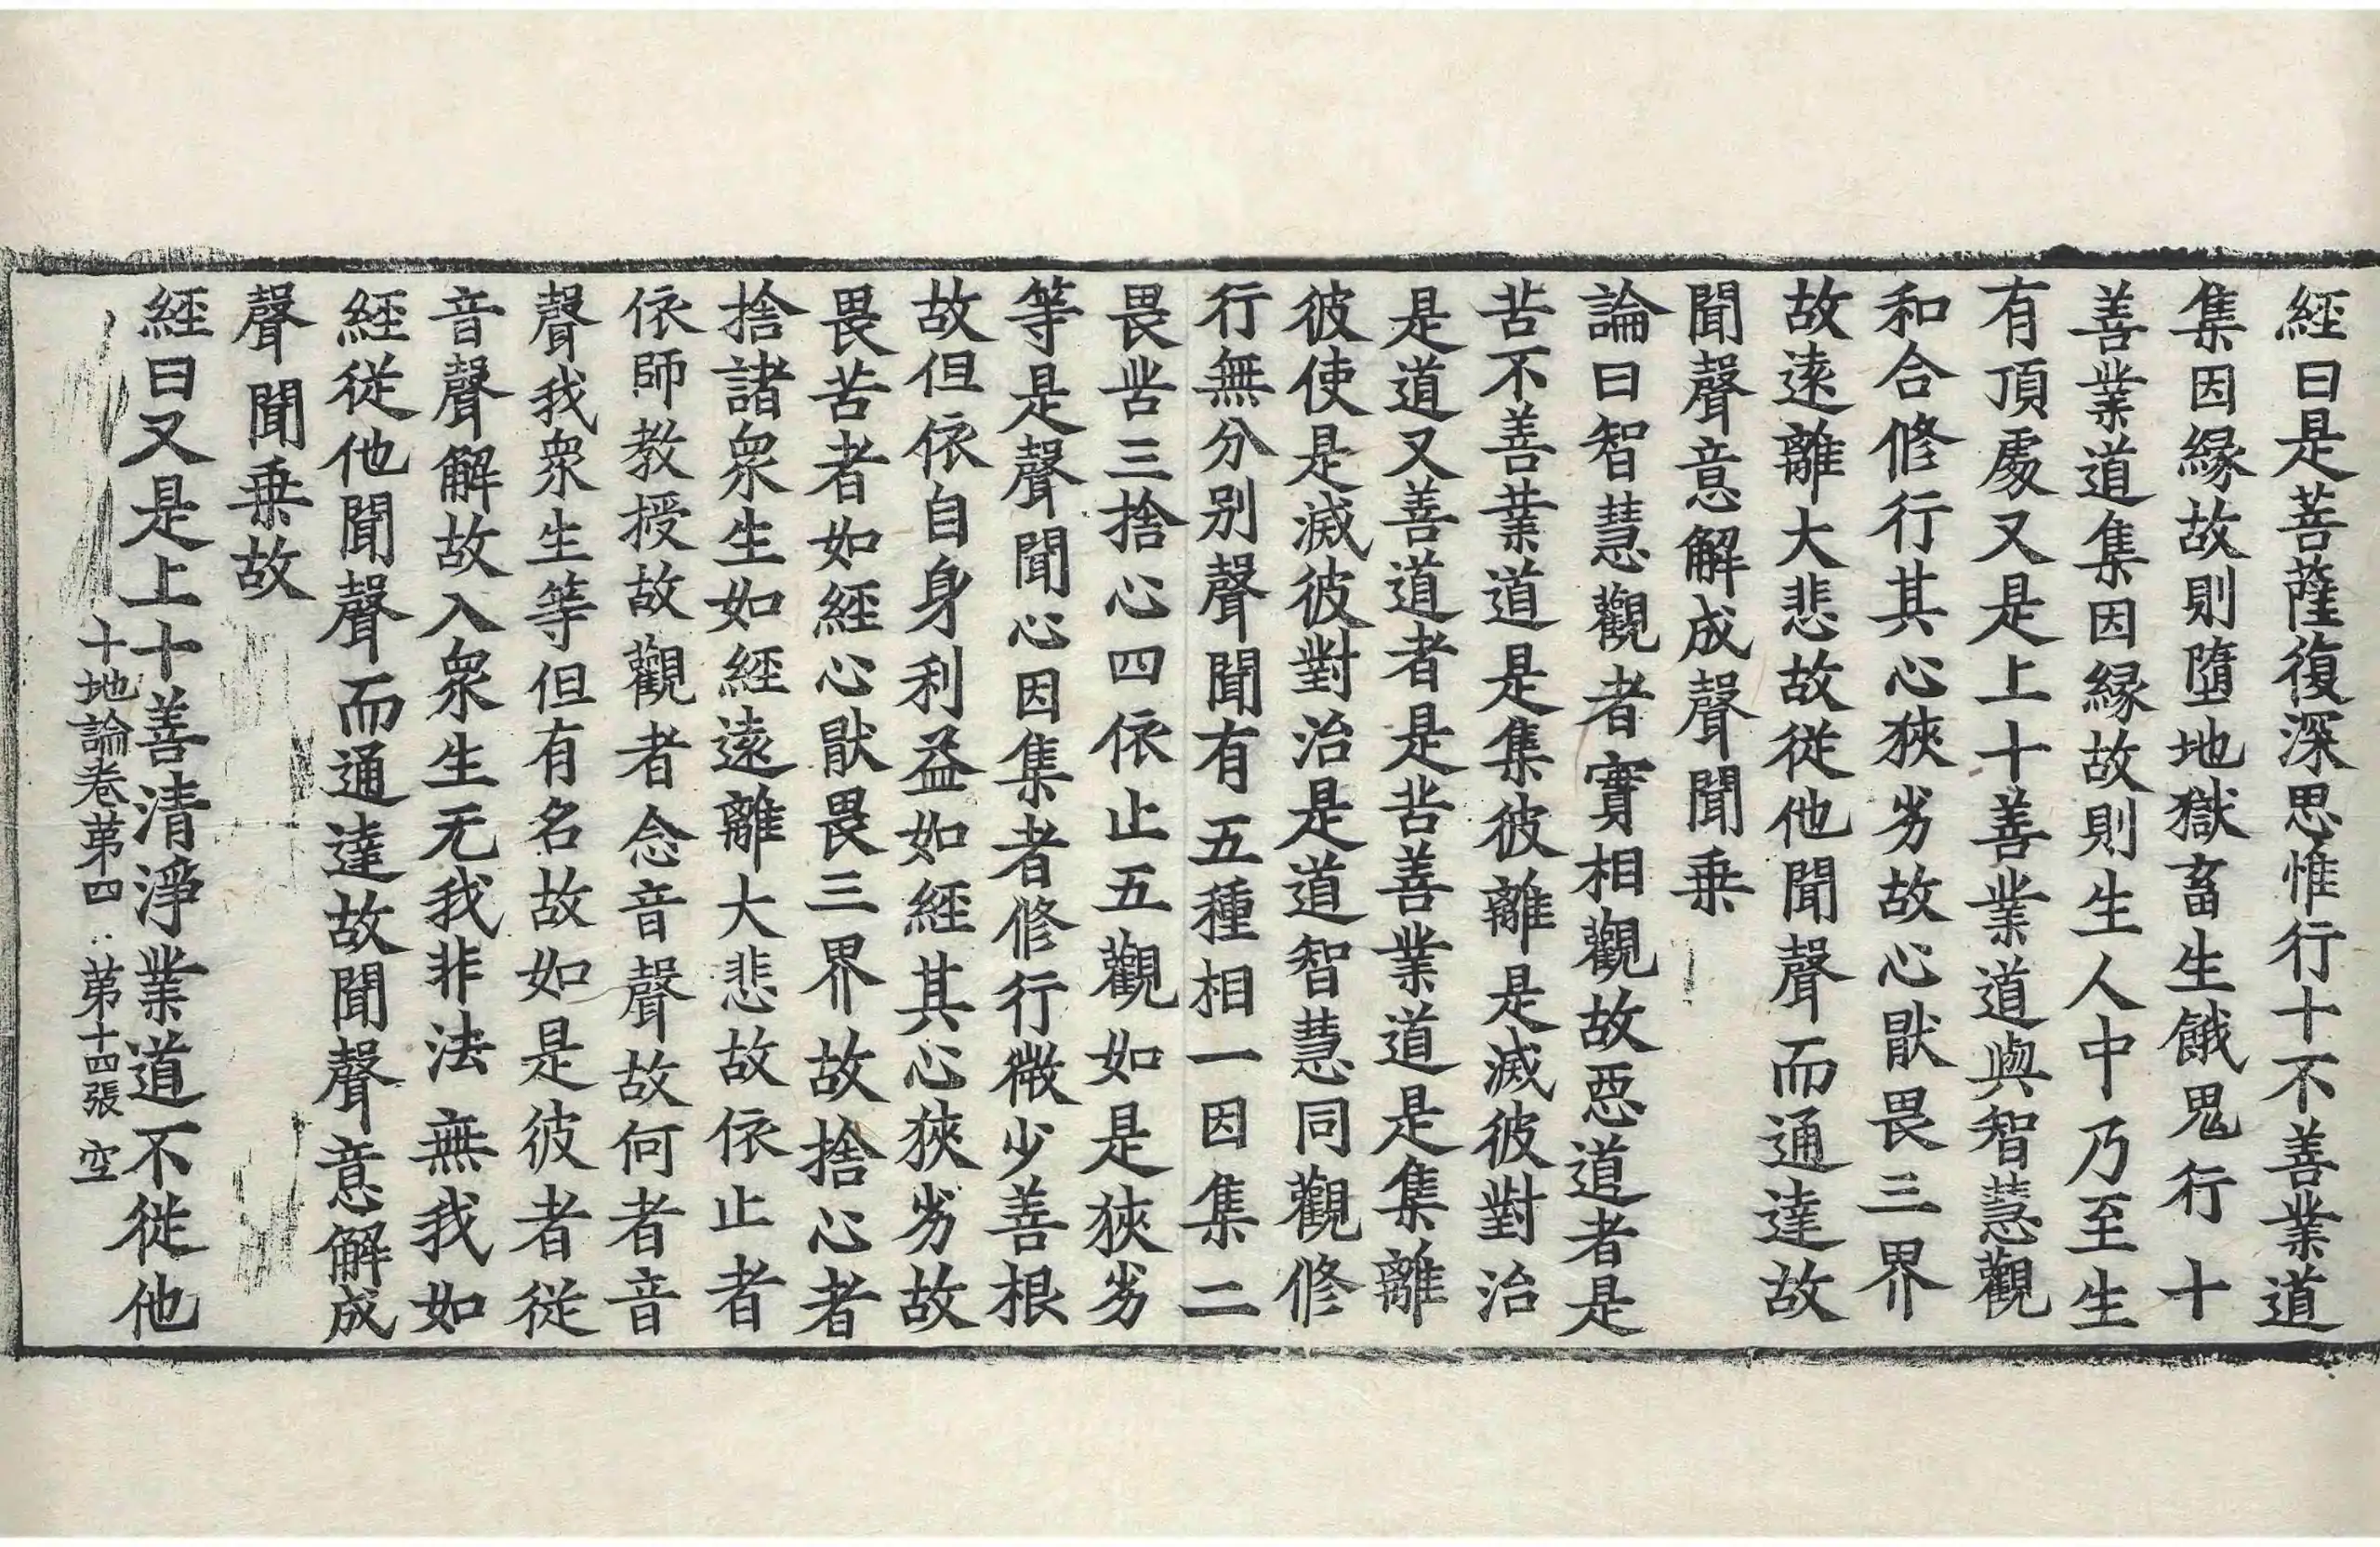 經曰是菩薩復深思惟行十不善業道
集因縁故則墮地獄畜生餓鬼行十
善業道集因縁故則生人中乃至生
有頂處又是上十善業道與智慧觀
和合修行其心狹劣故心猒畏三界
故遠離大悲故從他聞聲而通達故
聞聲意解成聲聞乗
論曰智慧觀者實相觀故惡道者是
苦不善業道是集彼離是滅彼對治
是道又善道者是苦善業道是集離
彼使是滅彼對治是道智慧同觀修
行無分别聲聞有五種相一因集二
畏苦三捨心四依止五觀如是狹劣
等是聲聞心因集者修行微少善根
故但依自身利益如經其心狹劣故
畏苦者如經心猒畏三界故捨心者
捨諸衆生如經遠離大悲故依止者
依師教授故觀者念音聲故何者音
聲我衆生等但有名故如是彼者從
音聲解故入衆生无我非法無我如
經從他聞聲而通達故聞聲意解成
聲聞乗故
經曰又是上十善清淨業道不從他
十地論卷第四 第十四張 空